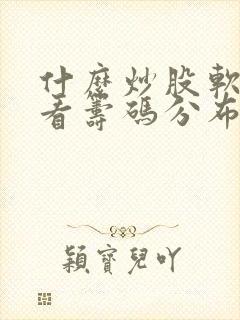 什麼炒股軟
看籌碼分布
穎寶兒吖